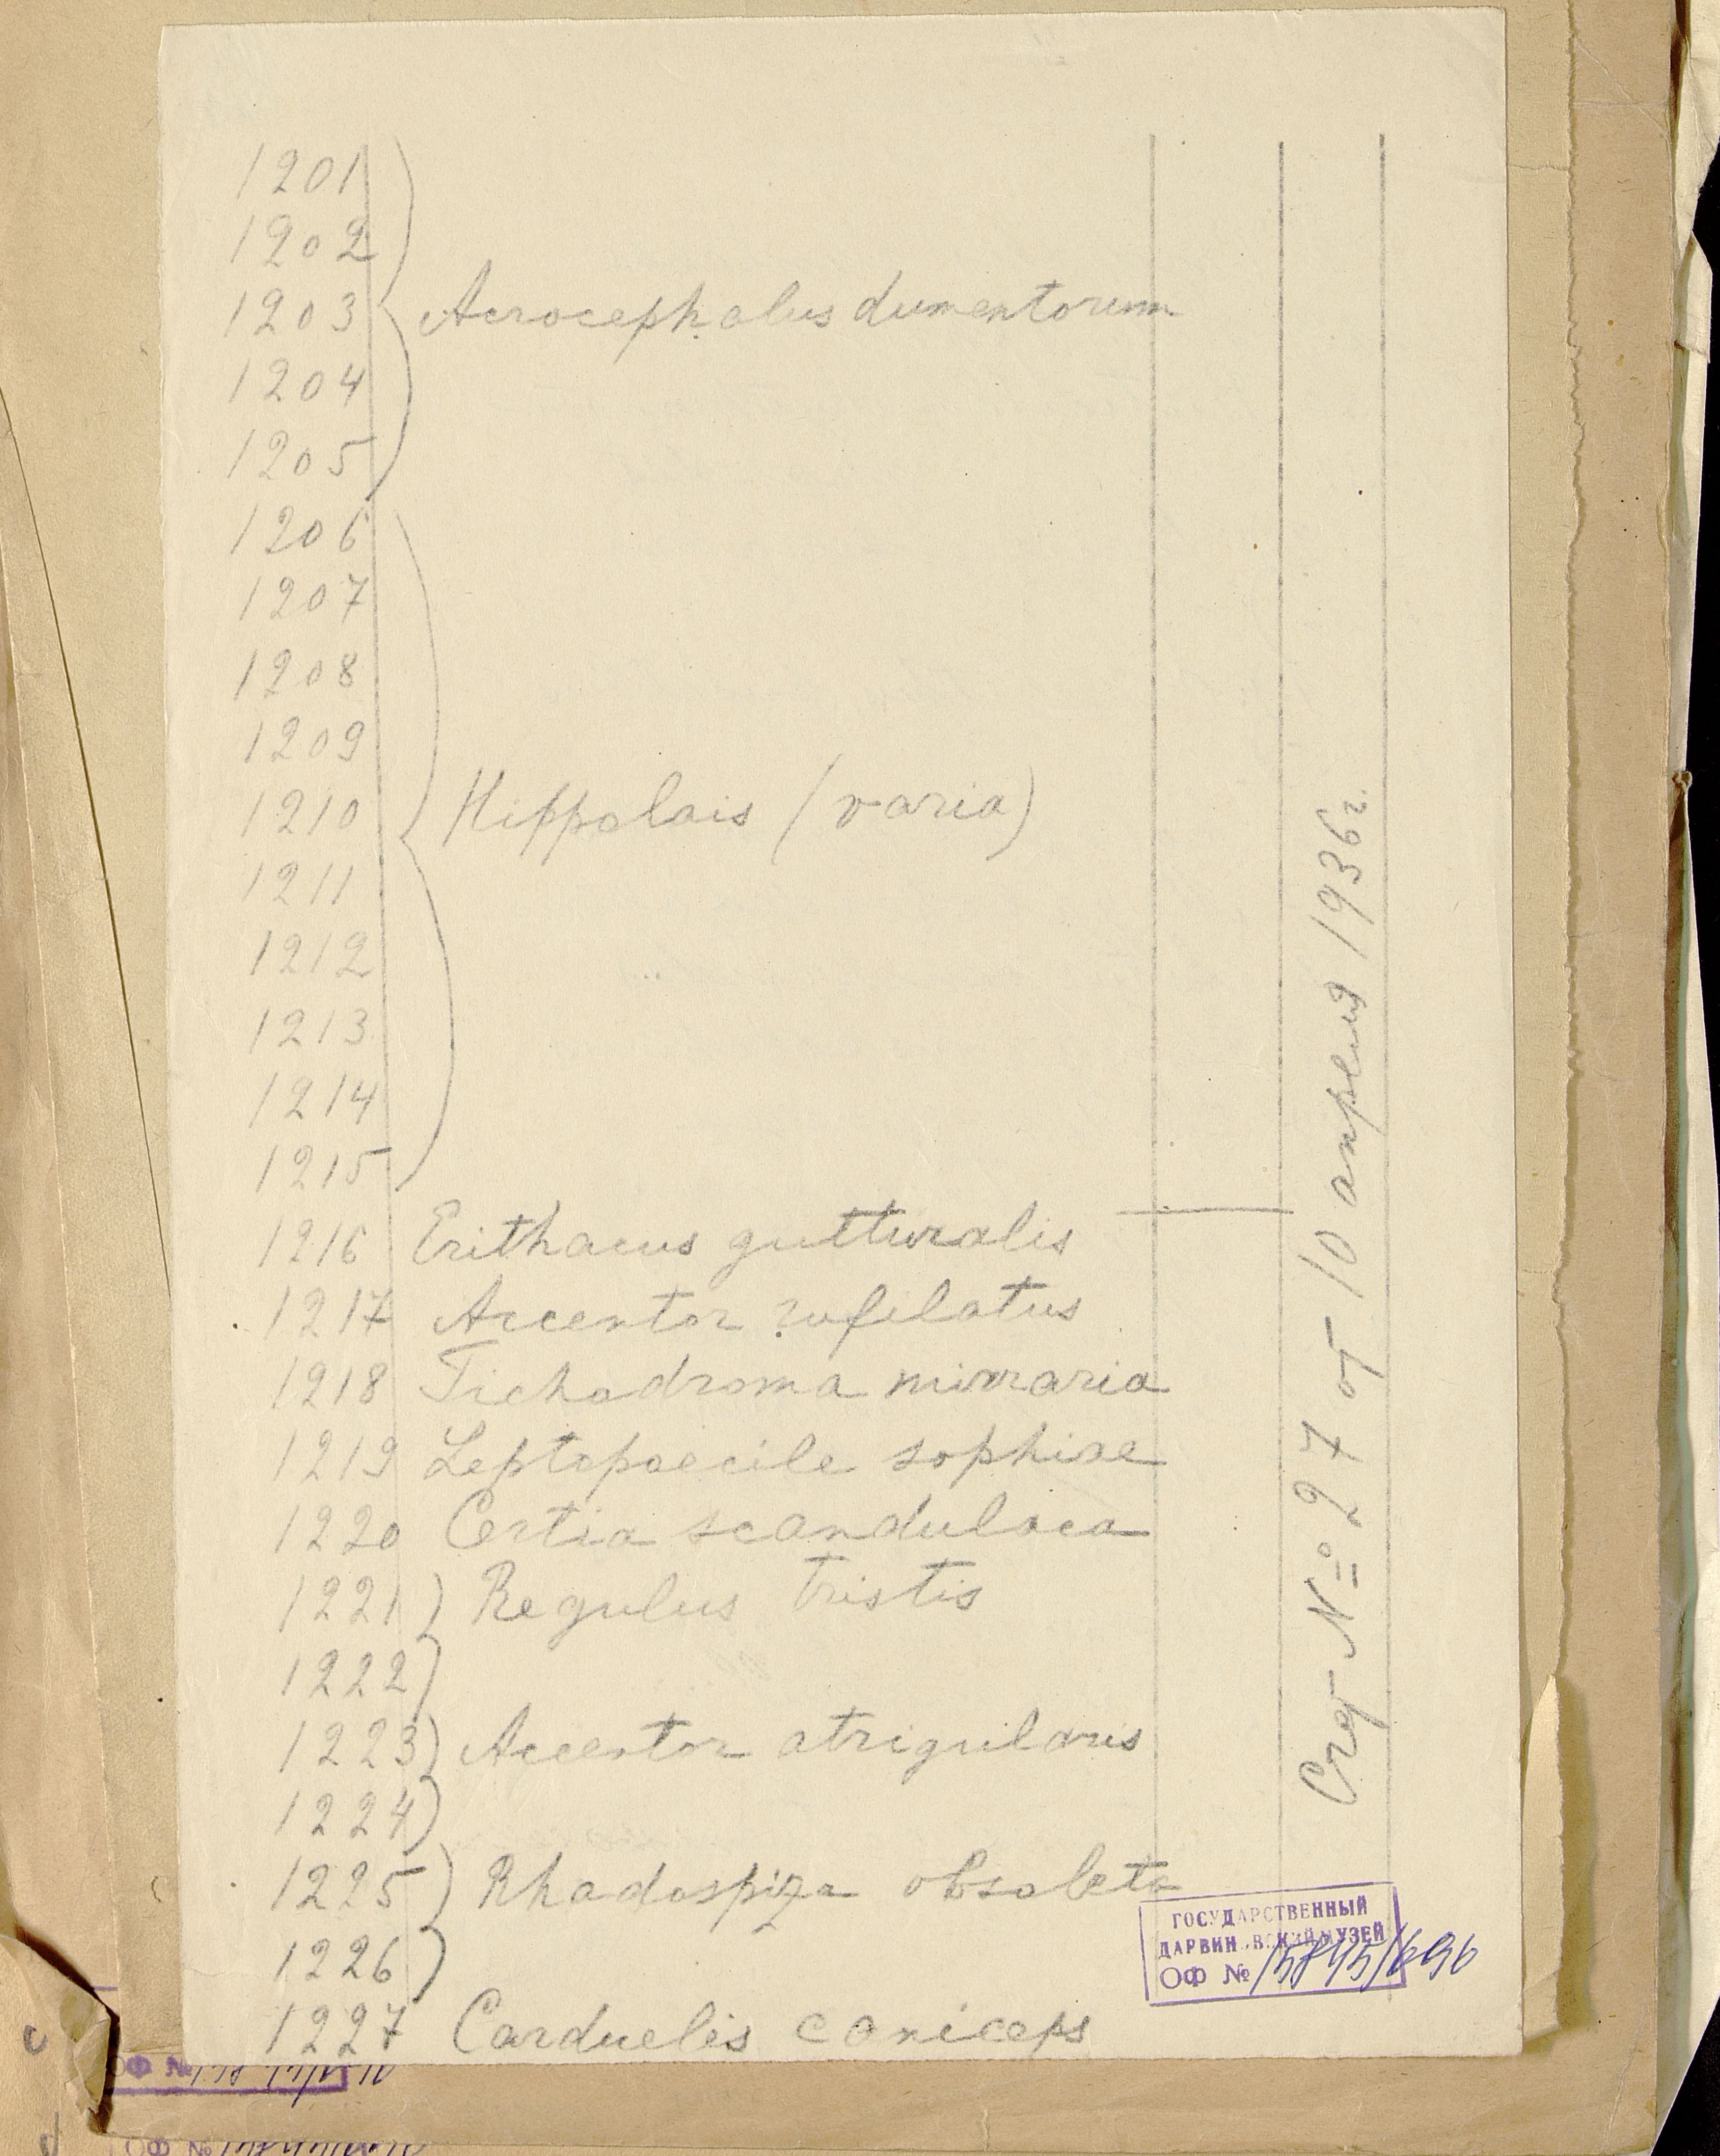 1201
1202
1203 Acrocephalus dumentorum
1204
1205
1206
1207
1208
1209
1210 Hippolais (varia)
1211
1212
1213
1214
1215
1216 Erithacus gutturalis
1217 Accentor rufilatus
1218 Tichodroma muraria
1219 Leptopoecile sophiae
1220 Certia scandulaca
1221) Regulus tristis
1222)
1223) Accentor atrigularis
1224)
1225) Rhodospiza obsoleta
1226)
1227 Carduelis caniceps
Счет № 27 от 10 апреля 1936 г.
ГОСУДАРСТВЕННЫЙ
ДАРВИНОВСКИЙ МУЗЕЙ
ОФ № 15845/696
ОФ №
ОФ №